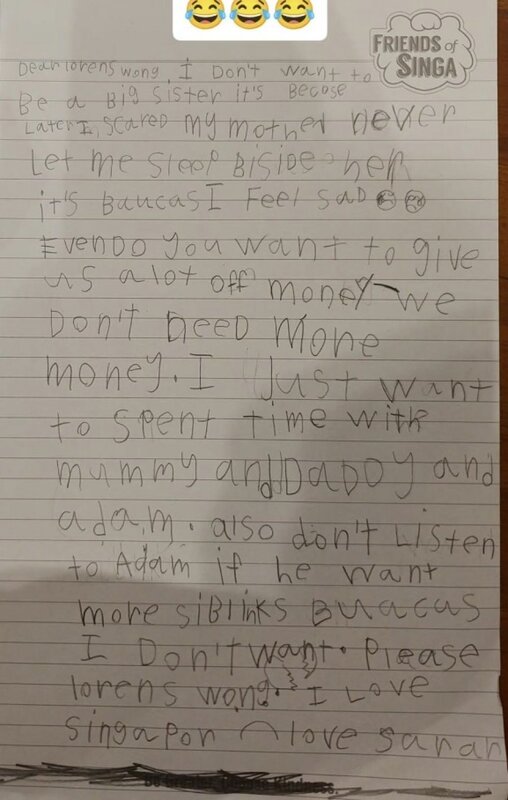 FRIENDS of
SINGA
Dear lorens wong, I Don't want to
Be a Big Sister it's Becose
Later I, Scared my mother never
Let me Sleep Biside her
it's Baucas I Feel SaD
Evendo you want to give
us alot off money we
Don't need More
money. I Just want
to Spent time with
mummy and DaDDy and
adam. also don't Listen
to Adam if he want
more siBlinks Buacus
I Don't want. Please
lorens wong. I Love
Singapor love sarah
Kindness.